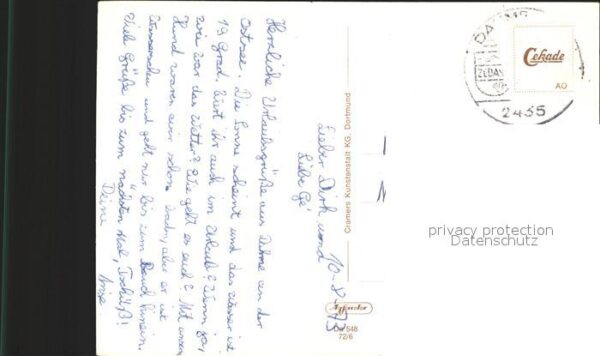 10.8.73
Lieber Dirk und
Liebe
Herzliche Urlaubsgrüße aus Dahme an der
Ostsee. Die Sonne scheint und das Wasser ist
19 Grad. Wart ihr auch im Urlaub? Wenn ja,
wie war das Wetter? Wie geht es euch? Mit unserem
Hund waren wir schon baden, aber er ist
und geht nur bis zum Bauch hinein.
Viele Grüße bis zum nächsten Mal, Tschüß!
Deine
Cramers Kunstanstalt KG, Dortmund
Da 548
72/6
Cekade
AO
2435
privacy protection
Datenschutz